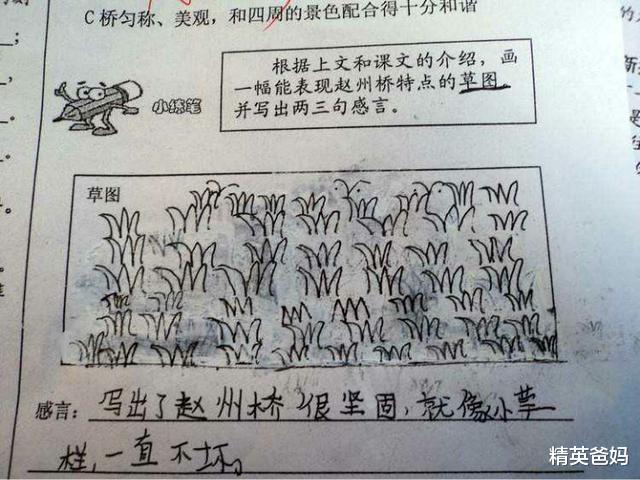 C 桥匀称、美观,和四周的景色配合得十分和谐
小练笔
根据上文和课文的介绍,画
一幅能表现赵州桥特点的草图,
并写出两三句感言。
草图
感言:写出了赵州桥很坚固,就像小草一
样,一直不坏。
精英爸妈